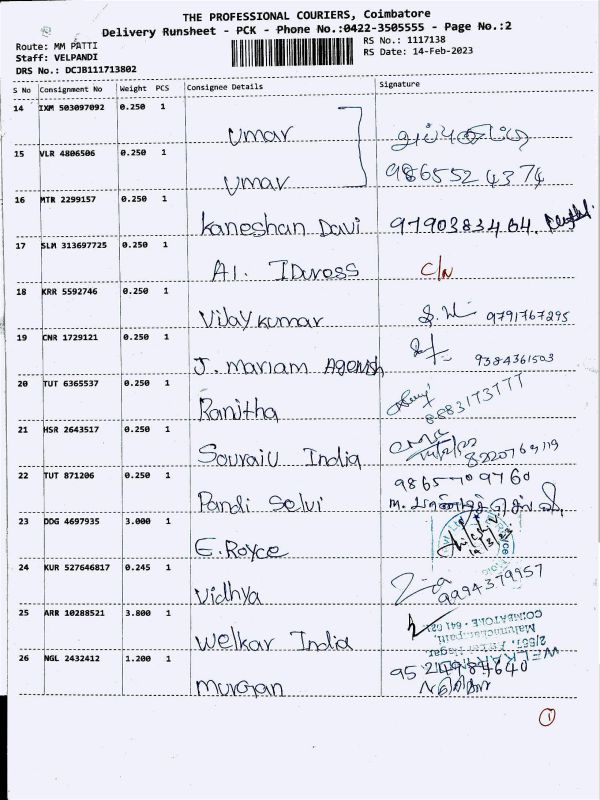 THE PROFESSIONAL COURIERS, Coimbatore
Delivery Runsheet - PCK - Phone No.:0422-3505555 - Page No.:2
Route: MM PATTI
Staff: VELPANDI
DRS No.: DCJB111713802
RS No.: 1117138
RS Date: 14-Feb-2023
S No Consignment No Weight PCS Consignee Details Signature
14 IXM 503097092 0.250 1 Umar
15 VLR 4806506 0.250 1 Umar 9865524374
16 MTR 2299157 0.250 1 Kaneshan Davi 9790383464.
17 SLM 313697725 0.250 1 A1. IDuross C/N
18 KRR 5592746 0.250 1 Vijay kumar 9791767295
19 CNR 1729121 0.250 1 J. mariam Agensh 9384361503
20 TUT 6365537 0.250 1 Ranitha 8883173777
21 HSR 2643517 0.250 1 Souraiu India
22 TUT 871206 0.250 1 Pandi Selvi 9865709760
23 DDG 4697935 3.000 1 E.Royce
24 KUR 527646817 0.245 1 Vidhya 9994379957
25 ARR 10288521 3.800 1 Welkar India
COIMBATORE - 641 021
26 NGL 2432412 1.200 1 murgan
1